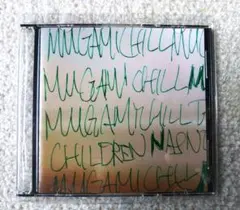 MUGAMICHILLMU
MUGAMICHILLM
MUGAMICHILLI
CHILDREN
MUGAMICHILL